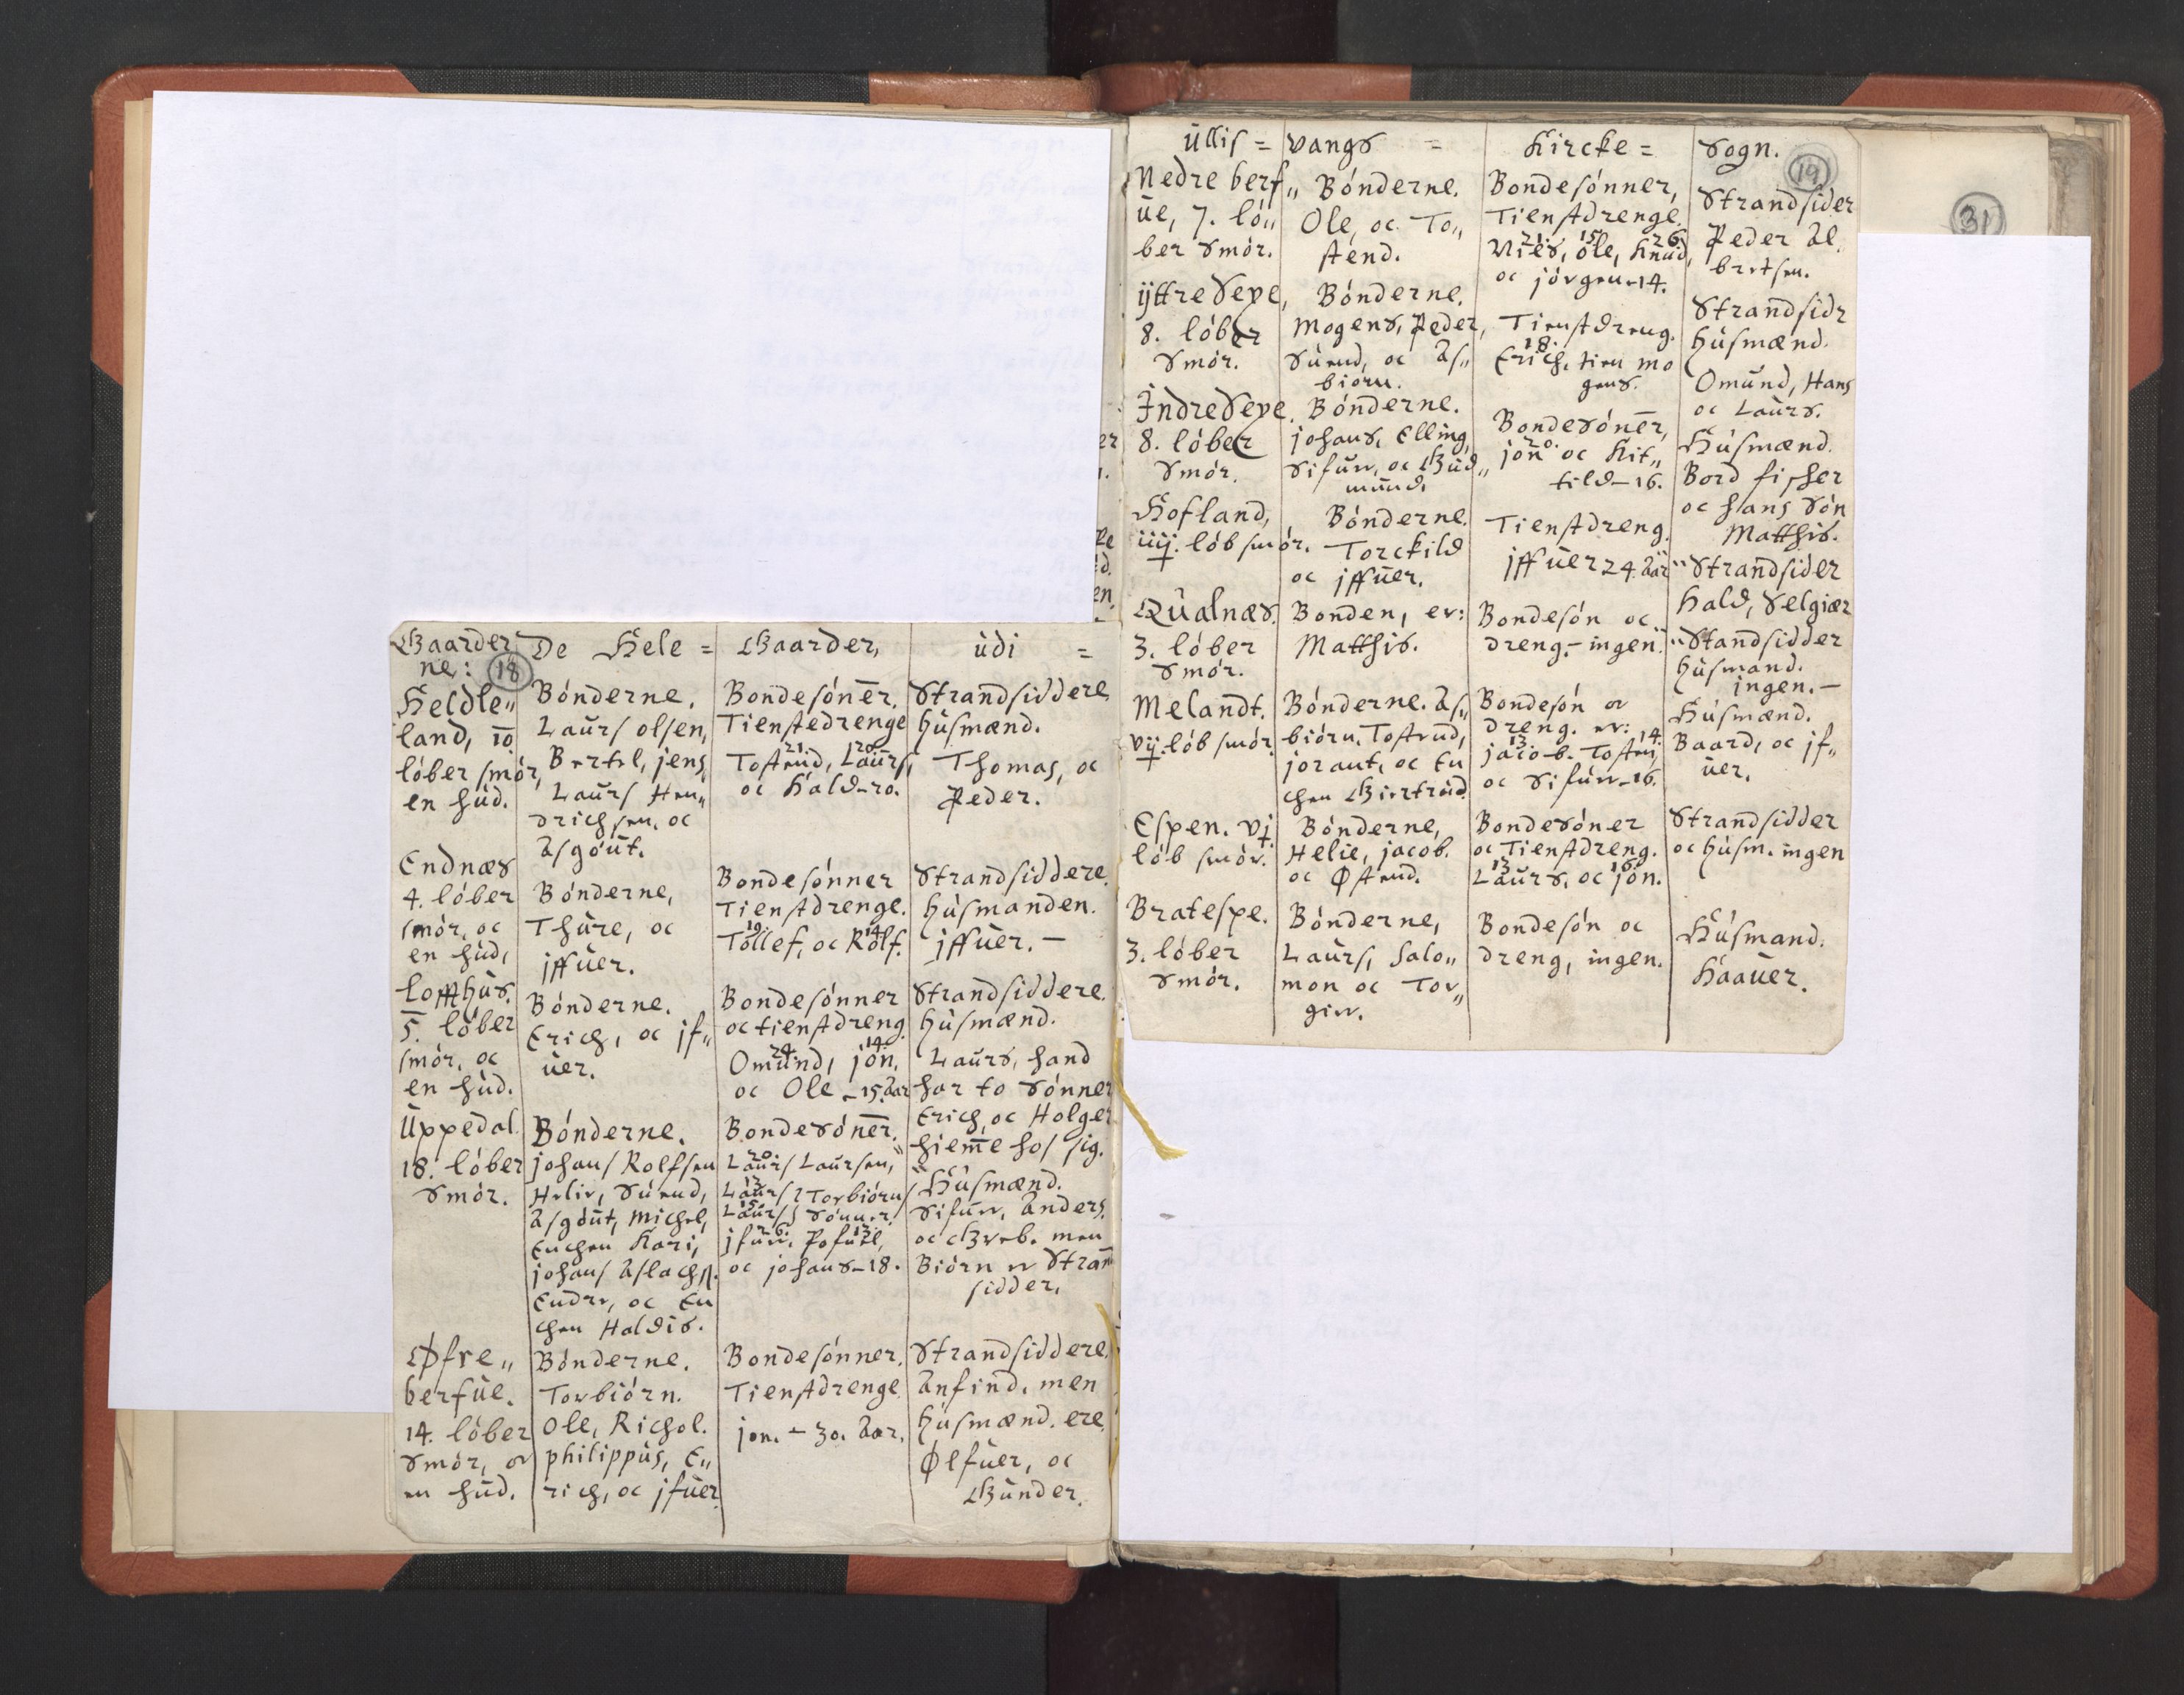 Gaarder
ne: 18
De Hele = Gaarder, udi =
Heldle„
land, 10
löber smör,
en hud.
Bönderne.
Laurs olsen,
Bertel, jens,
Laurs Hen„
drichsen, oc
Asgöut.
Bondesöner.
Tienstedrenge
21. 20.
Tostend, Laurs,
oc Hald - 20.
Strandsiddere
Husmænd.
Thomas, oc
Peder.
Endnæs
4. löber
smör, oc
en hud,
Bönderne,
Thure, oc
jffuer.
Bondesönner
Tienstdrenge.
19. 14.
Tollef, oc Rolf.
Strandsiddere.
Husmanden.
jffuer. -
Lofthus.
5. löber
smör, oc
en hud.
Bönderne.
Erich, oc jf„
uer.
Bondesönner
oc tienstdreng.
24. 14.
Omund, jon,
oc Ole - 15. Aar
Strandsiddere.
Husmænd.
Laurs, hand
har to Sönner
Erich, oc Holger
hieme hos sig.
Uppedal.
18. löber
Smör.
Bönderne.
johans Rolfsen
Helie, Suend,
Asgöut, Michel,
Enchen Kari,
johans Aslachs.
Endre, oc En
chen Haldis.
Bondesöner.
20.
Laurs Laursen,
Laurs Torbiörns
15.
Laurs Sönner.
26.
jfuer. Pofuel,
oc johans - 18.
Husmænd.
Sifuer, Anders,
oc Greb. men
Biörn er Stran
sidder.
Øfre„
berfue.
14. löber
Smör, oc
en hud.
Bönderne.
Torbiörn.
Ole, Richol.
philippus, E„
rich, oc jfuer
Bondesönner.
Tienstdrenge
jon. - 30. Aar.
Strandsiddere.
Anfind. men
Husmænd. ere
Ølfuer, oc
Gunder.
19
31
Ullis = vangs = Kircke = Sogn.
Nedre berf„
ue, 7. lö„
ber Smör.
Bönderne.
Ole, oc To„
stend.
Bondesönner,
Tienstdrenge.
21. 15. 26.
Niels, Ole, Knud,
oc jörgen - 14.
Strandsider
Peder Al
bretsen.
ÿttre Sexe,
8. löber
Smör.
Bönderne.
Mogens, Peder,
Suend, oc As„
biorn.
Tienstdreng.
18.
Erich. tien mo
gens.
Strandsidr
Husmænd.
Omund, Hans
oc Laurs.
Indre Sexe.
8. löber
Smör.
Bönderne.
johans, Elling,
Sifuer, oc Gud„
mund.
Bondesöner,
20.
jon oc Kit„
tild - 16.
Husmænd.
Bord fisker
oc hans Sön
Matthis.
Hofland,
iiij. löb smör.
Bönderne.
Torckild
oc jffuer.
Tienstdreng.
jffuer 24. Aar
Strandsider
Hald, Selgiær
Qualnæs.
3. löber
Smör.
Bonden, er:
Matthis.
Bondesön oc
dreng. - ingen.
Standsidder
Husmand.
ingen. -
Melandt.
vij. löb smör
Bönderne. As„
biörn, Tostend,
joraut, oc En
chen Giertrud.
Bondesön oc
dreng. er:
13. 14.
jacob. Tosten,
oc Sifuer - 16.
Husmænd.
Baard, oc jf„
uer.
Espen. vj
löb smör.
Bönderne,
Helie, jacob.
oc Østend.
Bondesöner
oc Tienstdreng.
13. 16.
Laurs, oc jon.
Strandsidder
oc husm. ingen
Bratespe.
3. löber
Smör.
Bönderne,
Laurs, Salo„
mon oc Tor„
gier.
Bondesön oc
dreng, ingen.
Husmand.
Haauer.